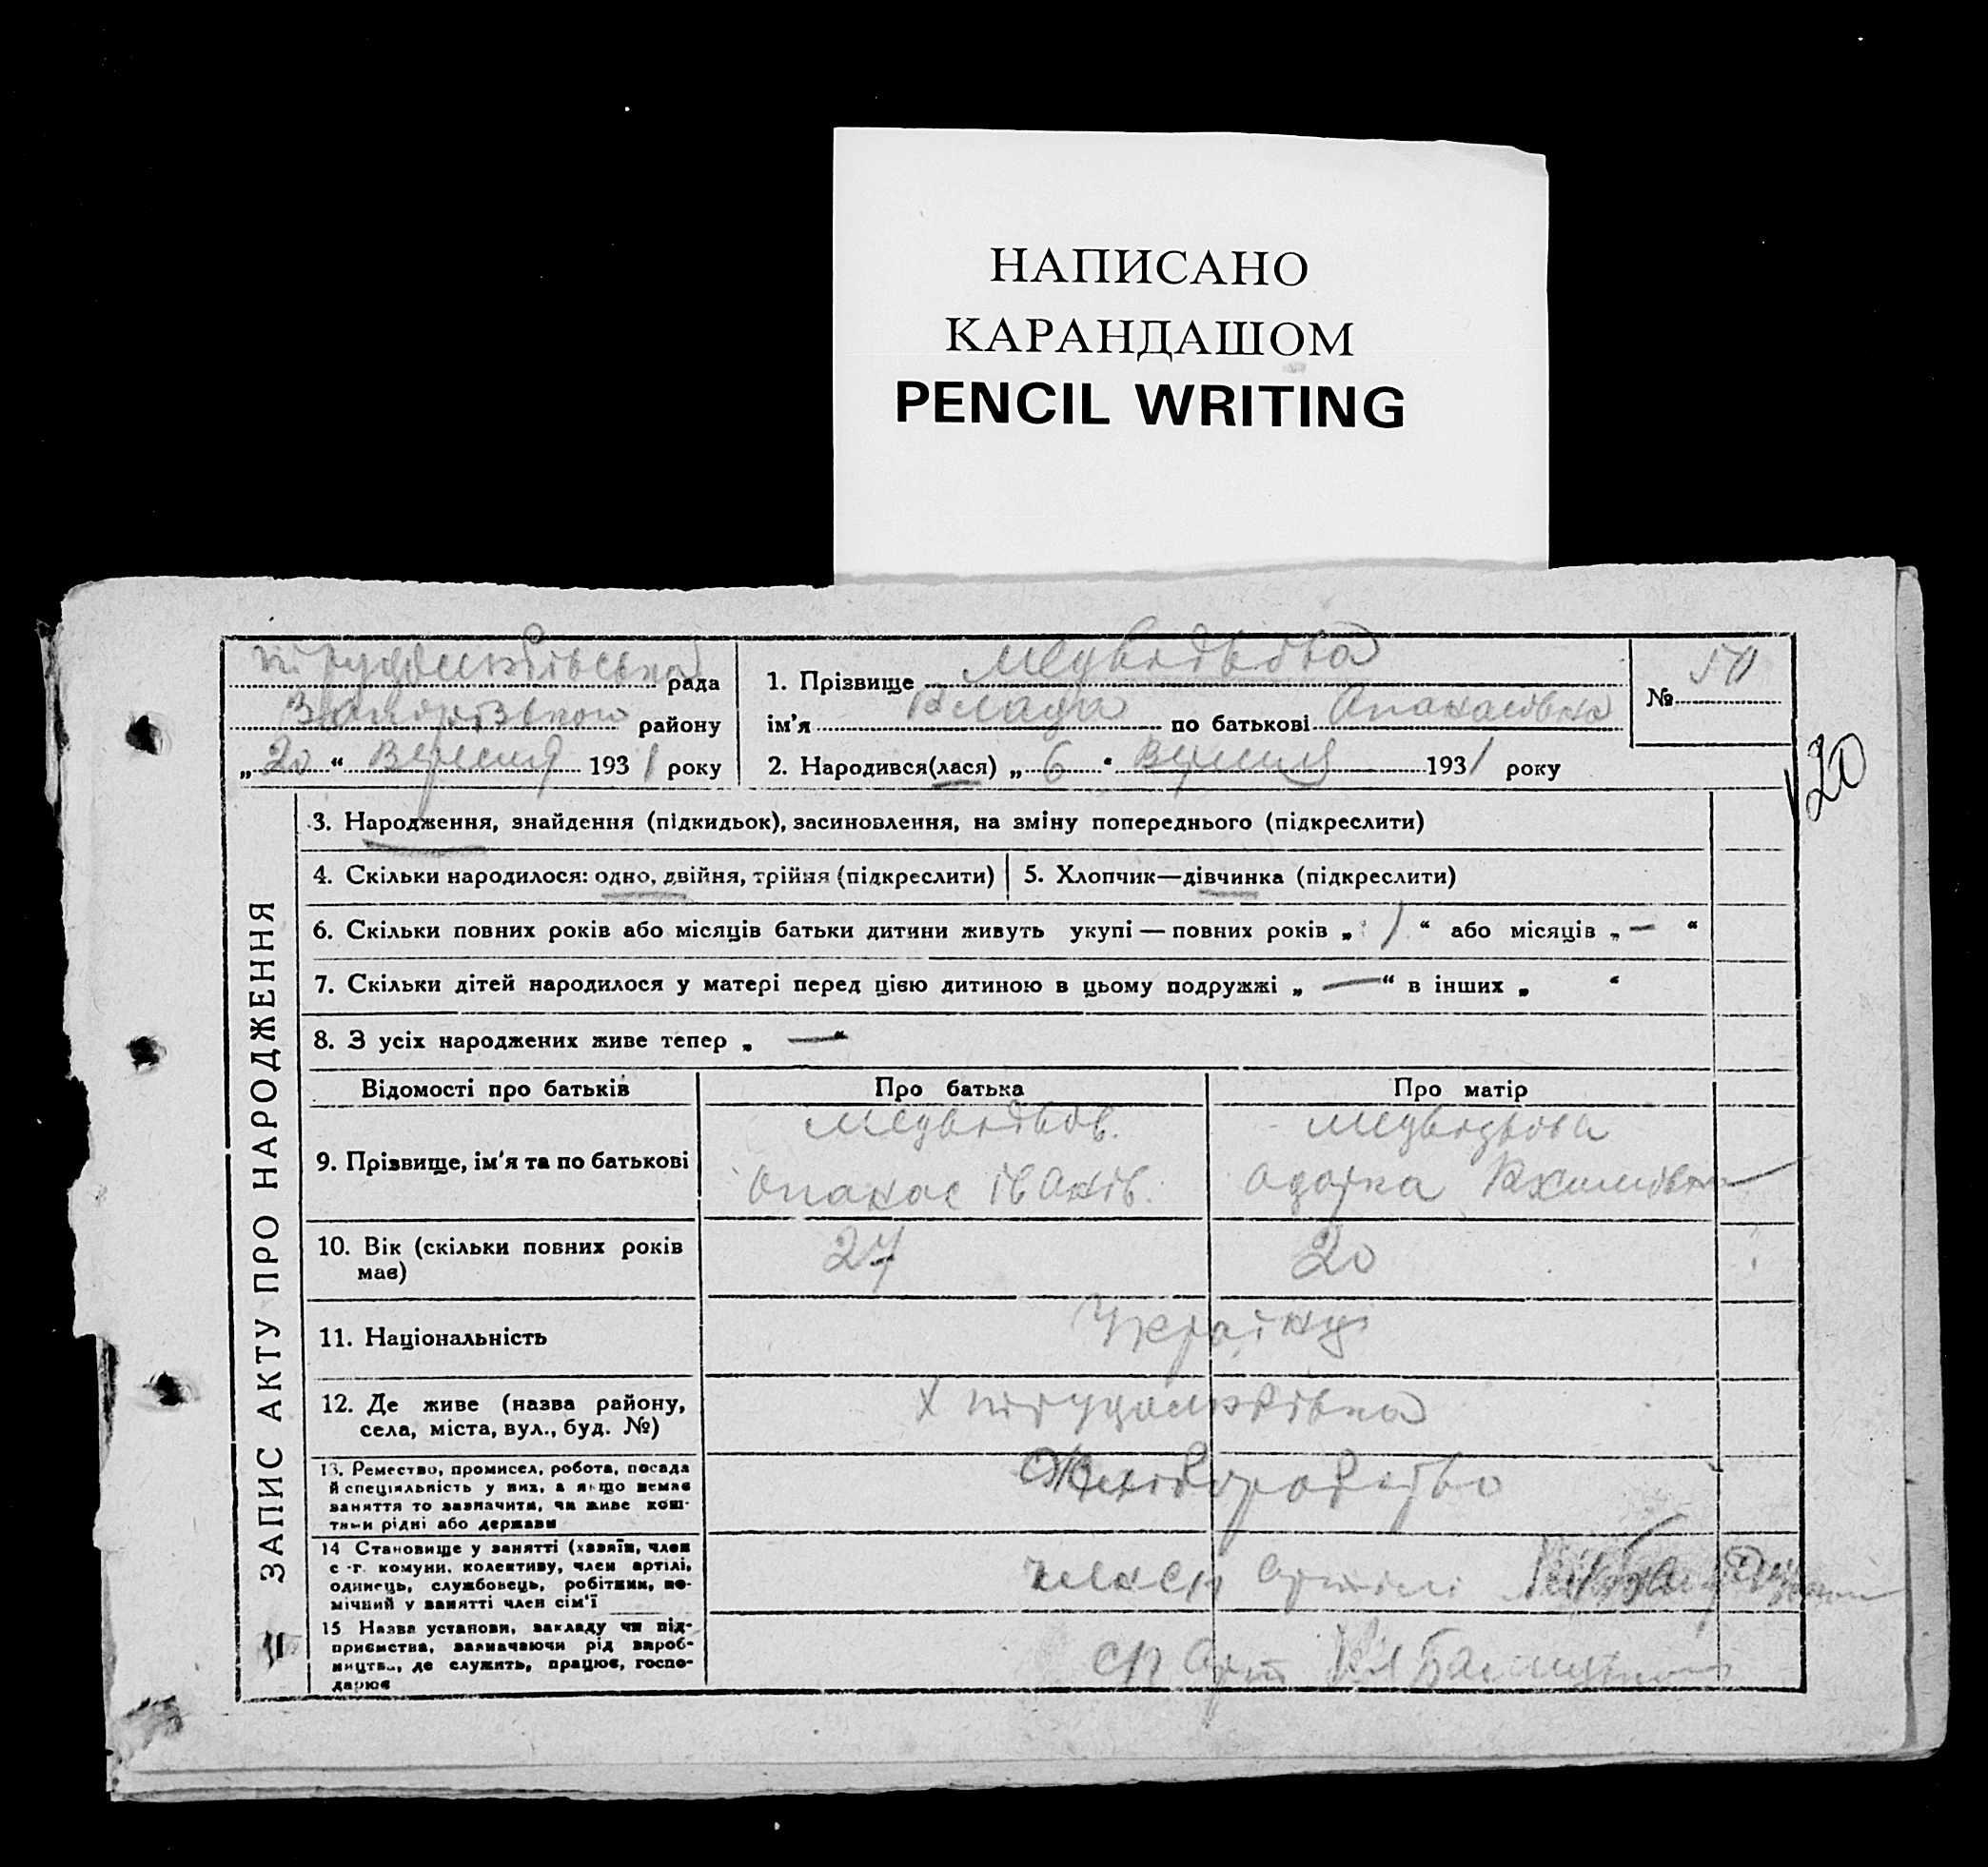 НАПИСАНО
КАРАНДАШОМ
PENCIL WRITING
рада
району
„20“ Вересня 1931 року
1. Прізвище Медведьова
ім'я Влада по батькові Опанасівна
2. Народився(лася) „6“ Вересня 1931 року
№ 50
20
ЗАПИС АКТУ ПРО НАРОДЖЕННЯ
3. Народження, знайдення (підкидьок), засиновлення, на зміну попереднього (підкреслити)
4. Скільки народилося: одно, двійня, трійня (підкреслити)
5. Хлопчик—дівчинка (підкреслити)
6. Скільки повних років або місяців батьки дитини живуть укупі — повних років „1“ або місяців „—“
7. Скільки дітей народилося у матері перед цією дитиною в цьому подружжі „—“ в інших „ “
8. З усіх народжених живе тепер „—“
Відомості про батьків Про батька Про матір
9. Прізвище, ім'я та по батькові
Медведьов. Медведьова
Опанас Іванів.
10. Вік (скільки повних років
має)
27 20
11. Національність
Українці
12. Де живе (назва району,
села, міста, вул., буд. №)
13. Ремество, промисел, робота, посада
й спеціяльність у них, а якщо немає
заняття то зазначити, чи живе кош-
тами рідні або держави
Хліборобство
14 Становище у занятті (хазяїн, член
с.-г. комуни, колективу, член артілі,
одинець, службовець, робітник, по-
мічний у занятті член сім'ї
член сп артілі
15 Назва установи, закладу чи під-
приємства, зазначаючи рід вироб-
ництва, де служить, працює, госпо-
дарює
сп Арт